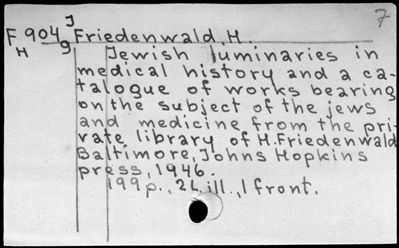 7
J
F 904g Friedenwald, H.
H
Jewish luminaries in
medical history and a ca-
talogue of works bearing
on the subject of the jews
and medicine from the pri-
vate library of H. Friedenwald
Baltimore, Johns Hopkins
press, 1946.
199 p., 2 L. ill., 1 front.